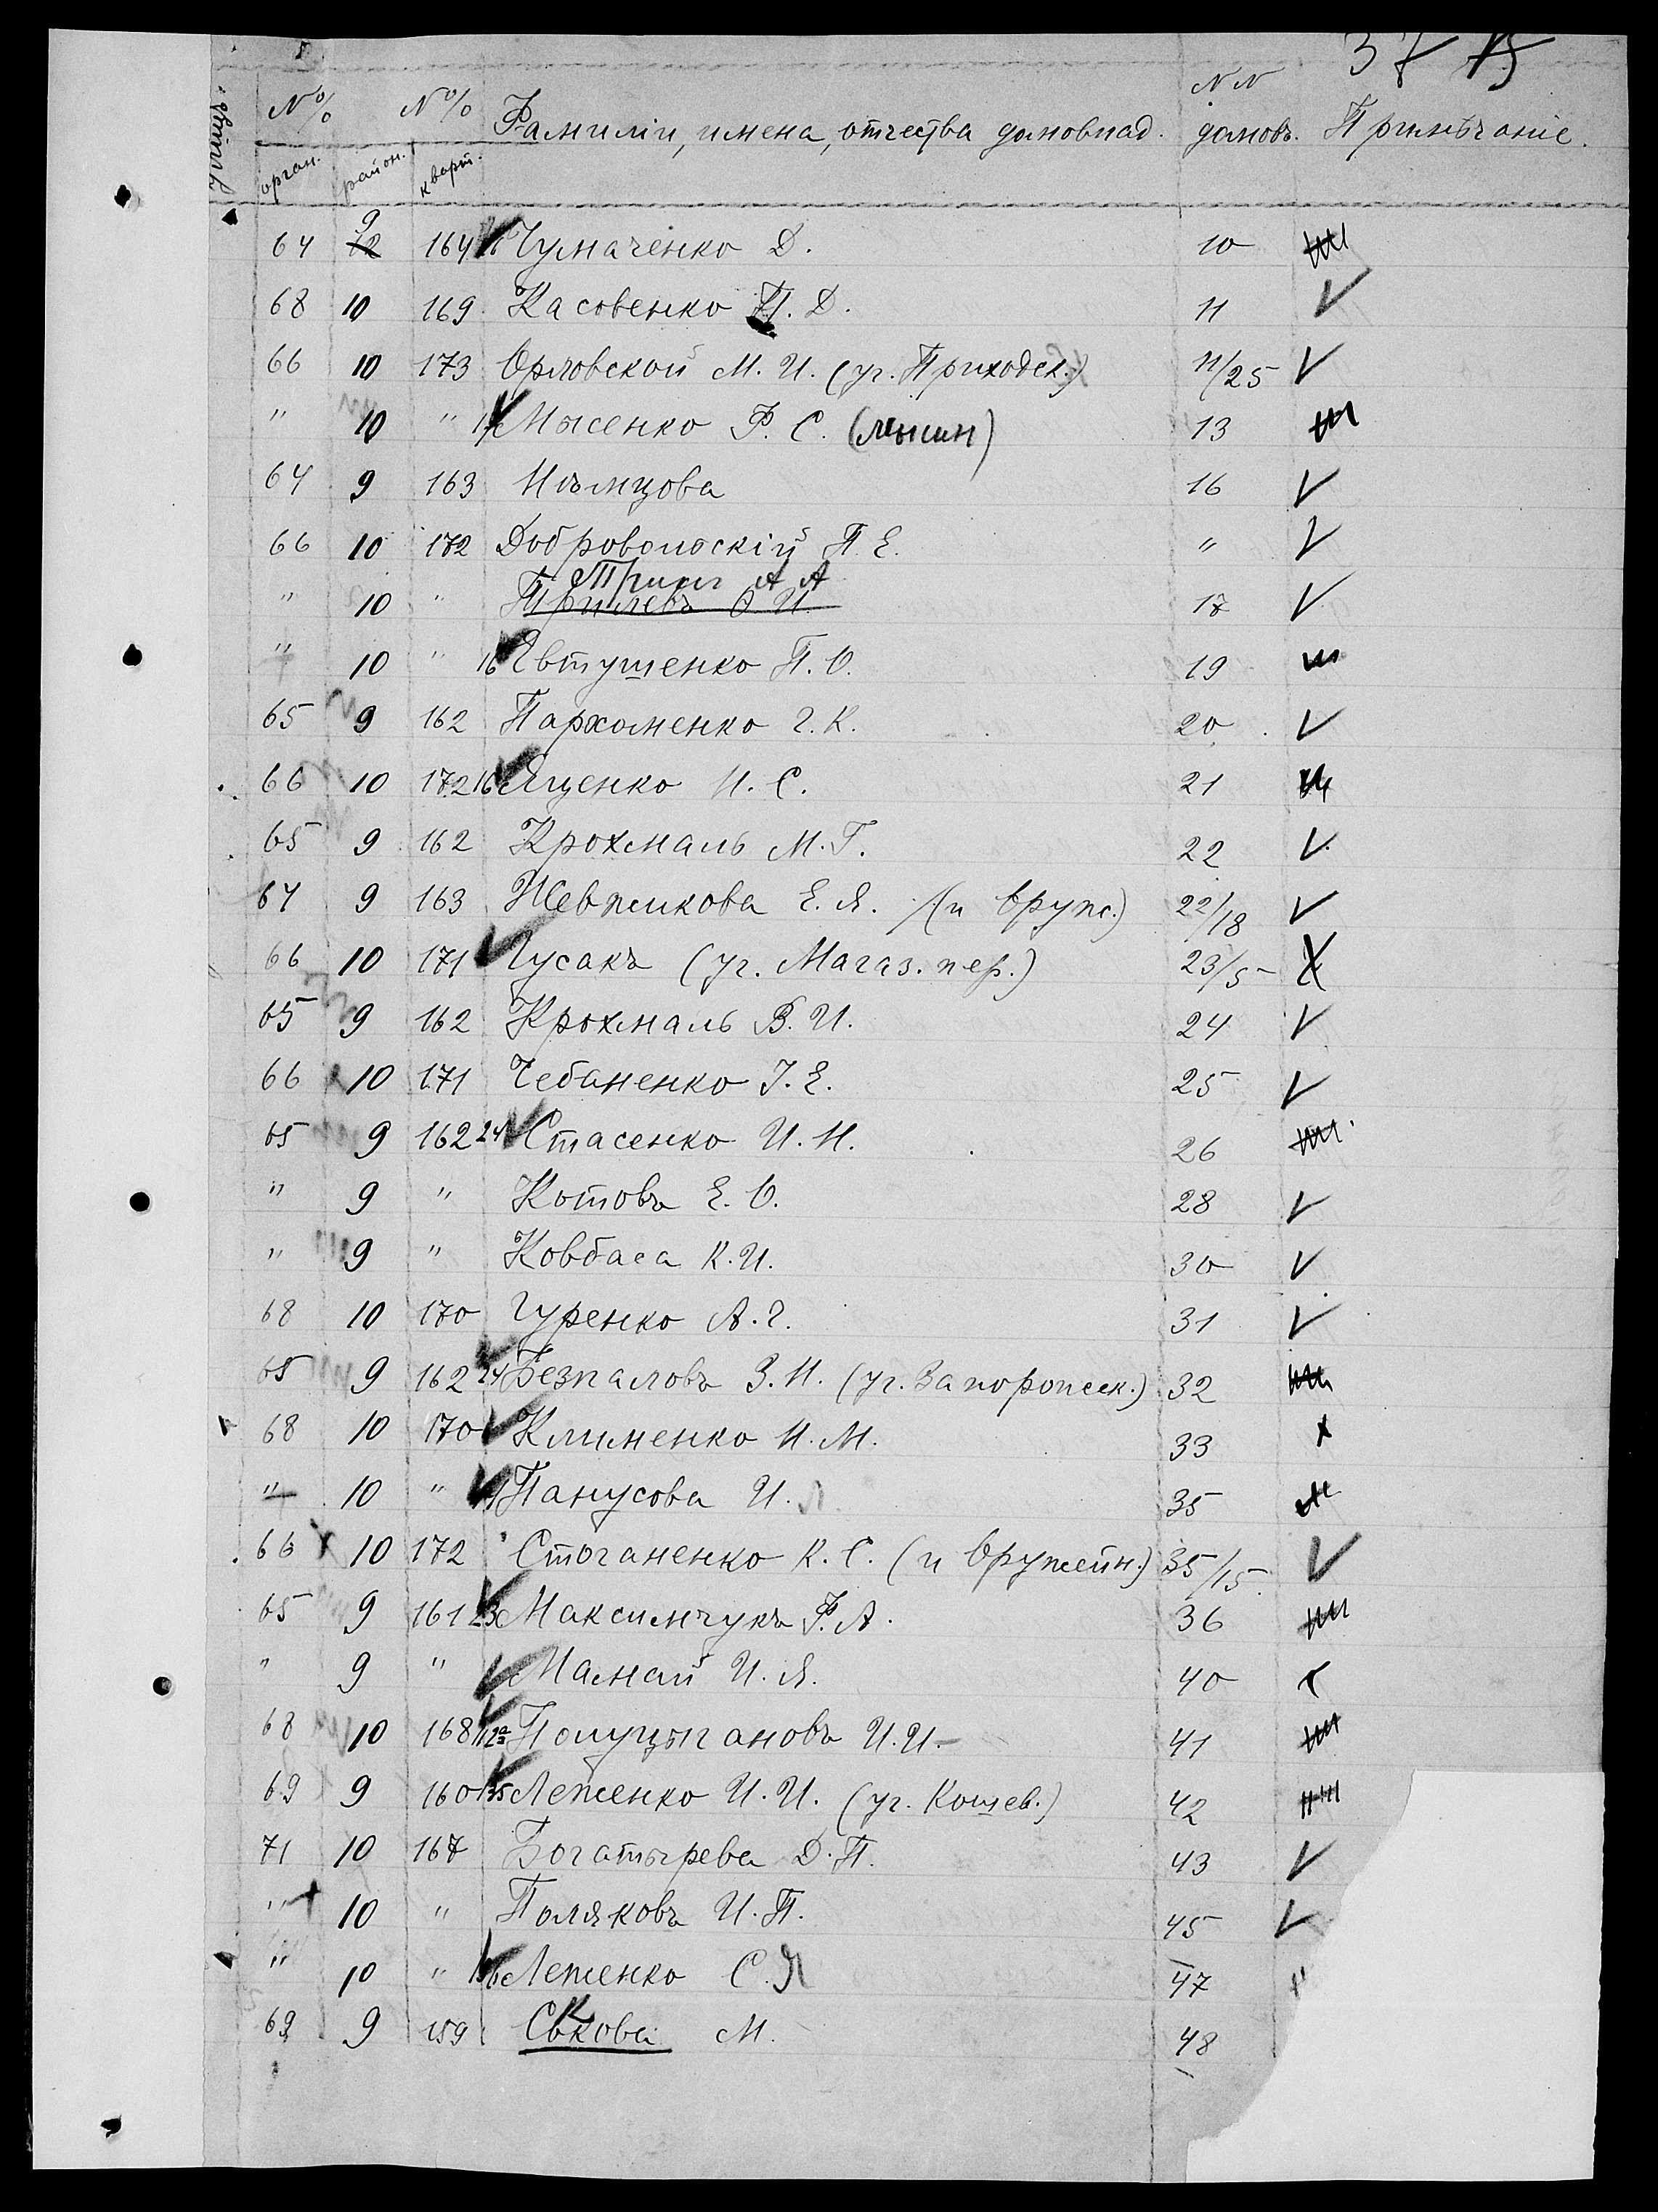 37
№№ №№ Фамиліи, имена, отчества домовлад. NN домовъ. Примѣчаніе.
орган. район. кварт.
64 9 164 Чумаченко Д. 10
68 10 169 Касовенко П. Д. 11
66 10 173 Орловской М. И. (уг. Приходск.) 11/25
" 10 " Мысенко Ф. С. (Мысин) 13
64 9 163 Нѣмцова 16
66 10 172 Добровольскій П. Е. "
А А
" 10 " 17
" 10 " 16 Евтушенко П. О. 19
65 9 162 Пархоменко Г. К. 20
66 10 172 16 Яценко И. С. 21
65 9 162 Крохмаль М. Г. 22
64 9 163 Шевлюкова Е. Я. (и Оруж.) 22/18
66 10 171 Гусакъ (уг. Магаз. пер.) 23/5
65 9 162 Крохмаль В. И. 24
66 10 171 Чебаненко І. Е. 25
65 9 162 24 Стасенко И. Н. 26
" 9 " Котовъ Е. О. 28
" 9 " Ковбаса К. И. 30
68 10 170 Гуренко А. Г. 31
65 9 162 24 Безпаловъ З. И. (уг. Запорожск.) 32
68 10 170 Клименко И. М. 33
" 10 " Панусова И. 35
66 10 172 Стоганенко К. С. (и Оружейн.) 35/15
65 9 161 23 Максимчукъ Ф. А. 36
" 9 " Мамай И. Я. 40
68 10 168 Полуцыгановъ И. И. 41
69 9 160 35 Леженко И. И. (уг. Кошев.) 42
71 10 167 Богатырева Д. П. 43
" 10 " Поляковъ И. П. 45
" 10 " Леженко С. Я 47
69 9 159 М. 48